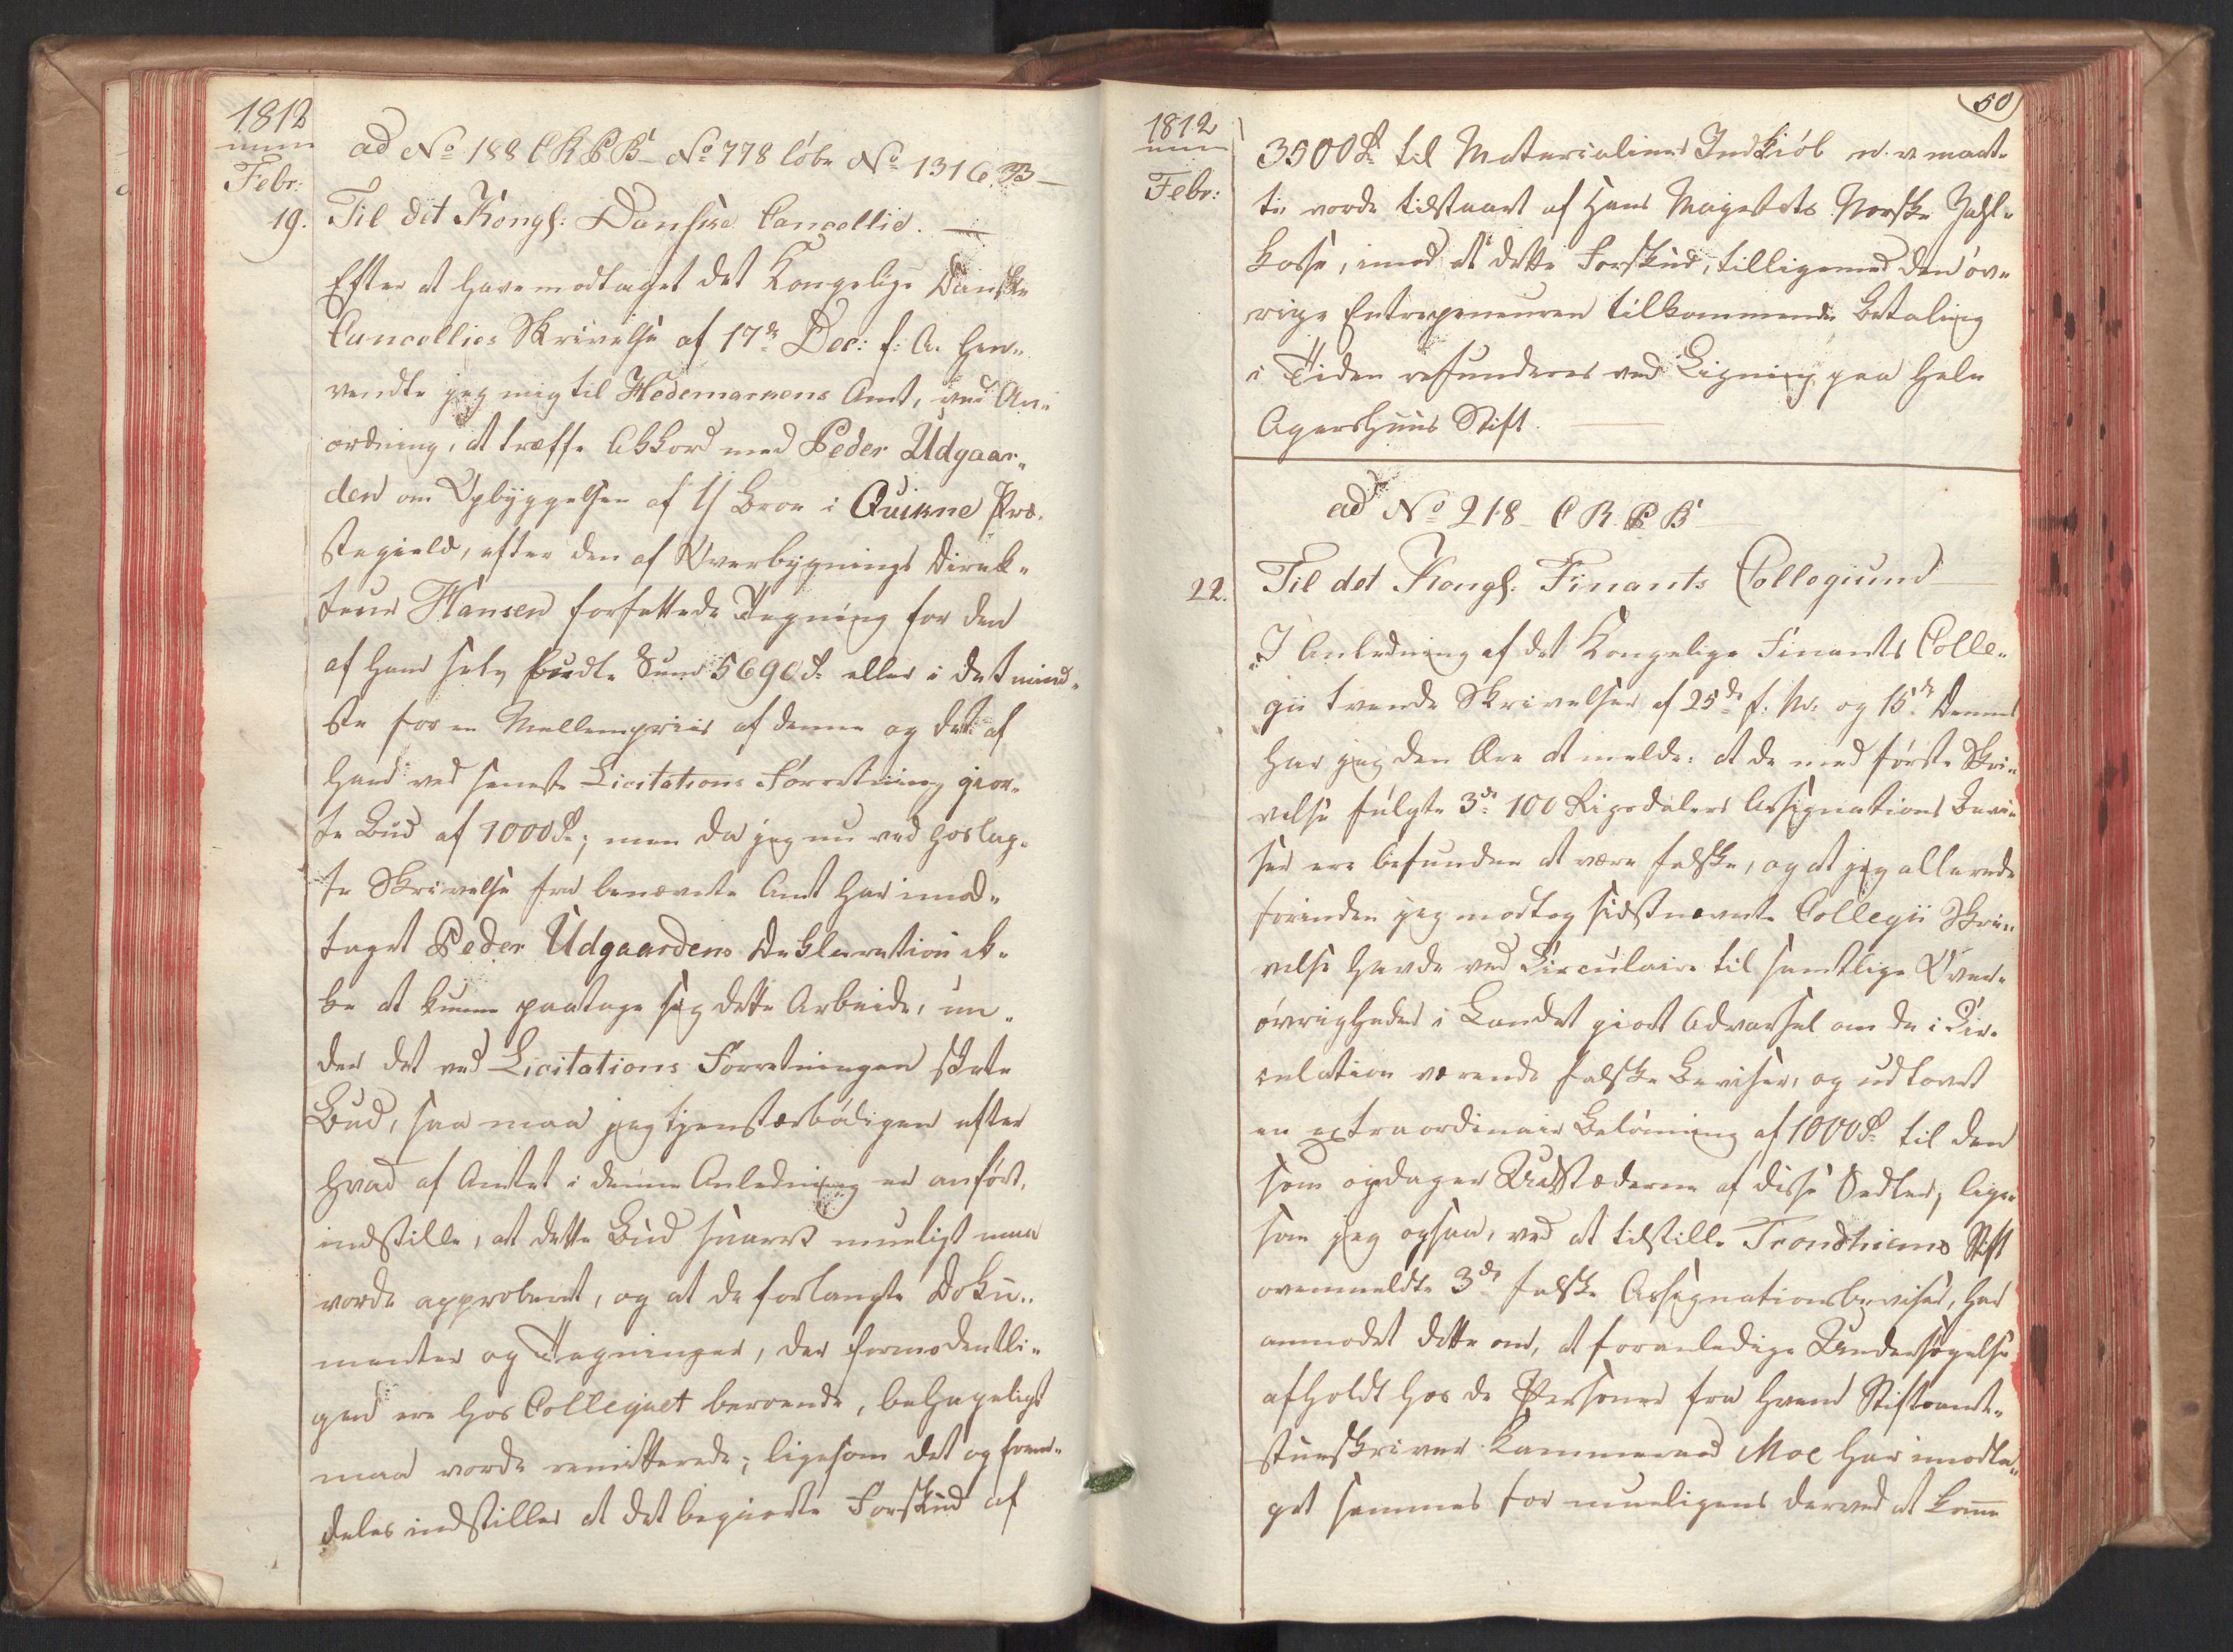 1812
Febr:
19.
ad No 188 C R P B No 778 löbe No 1316. B
Til det Kongl: Danske Cancellie.
Efter at have modtaget det Kongelige Danske
Cancellies Skrivelse af 17de Dec: f: A. hen-
vendte jeg mig til Hedemarkens Amt, ved An-
ordning, at træffe Akkord med Peder Udgaar-
den om Opbyggelsen af Broe i Quikne Præ-
stegield, efter den af Overbygnings Direk-
teur Hansen forfattede Tegning for den
af ham selv budte Sum 5690 rd eller i det mind-
ste for en Mellempriis af denne og det af
ham ved seneste Licitations Forretning gior-
te Bud af 7000 rd; men da jeg nu ved hoslag-
te Skrivelse fra benævnte Amt har imod-
taget Peder Udgaardens Deklaration ik-
ke at kunne paatage sig dette Arbeide, un-
der det ved Licitations Forretningen skete
Bud, saa maa jeg tjenstærbödigen efter
hvad af Amtet i denne Anledning er anfört,
indstille, at dette Bud snarest mueligt maa
vorde approberet, og at de forlangte Doku-
menter og Tegninger, der formodentli-
gen ere hos Collegiet beroende, behageligst
maa vorde remitterede; ligesom det og frem-
deles indstilles at det begierte Forskud af
1812
Febr:
50
3500 rd til Materialiers Indkiöb m. v. maat-
te vorde tilstaaet af Hans Majestæts Norske Zahl-
kasse, imod at dette Forskud, tilligemed den öv-
rige Entrepeneuren tilkommende Betaling
i Tiden refunderes ved Ligning paa hele
Agershuus Stift.
ad No 218 C R P B
22.
Til det Kongl. Finants Collegium
I Anledning af det Kongelige Finants Colle-
gii tvende Skrivelser af 25de f. M. og 15de Dennes
har jeg den Ære at melde: at de med förste Skri-
velse fulgte 3de 100 Rigsdalers Assignations Bevi-
ser ere befundne at være falske, og at jeg allerede
forinden jeg modtog sidstnævnte Collegii Skri-
velse havde ved Circulaire til samtlige Over-
övrigheder i Landet giort Advarsel om de i Cir-
culation værende falske Beviser, og udlovet
en extraordinair Belönning af 1000 rd til den
som opdager Udstæderne af disse Sedler, lige-
som jeg ogsaa, ved at tilstille Trondhiems Stift
ovenmeldte 3de falske Assignationsbeviser, har
anmodet dette om, at foranledige Undersögelse
afholdt hos de Personer fra hvem Stiftamt-
stueskriver Kammerraad Moe har imodta-
get sammes for mueligens derved at komme